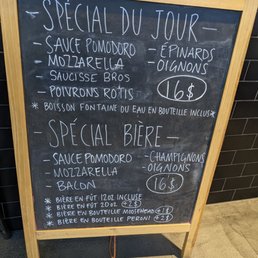 - SPÉCIAL DU JOUR -
- SAUCE POMODORO - ÉPINARDS
- MOZZARELLA - OIGNONS
- SAUCISSE BROS
- POIVRONS ROTIS 16$
* BOISSON FONTAINE OU EAU EN BOUTEILLE INCLUS *
- SPÉCIAL BIÈRE -
- SAUCE POMODORO - CHAMPIGNONS
- MOZZARELLA - OIGNONS
- BACON 16$
* BIÈRE EN FÛT 12OZ INCLUSE
* BIÈRE EN FÛT 20OZ +2$
* BIÈRE EN BOUTEILLE MOOSEHEAD +1$
* BIÈRE EN BOUTEILLE PERONI +2$